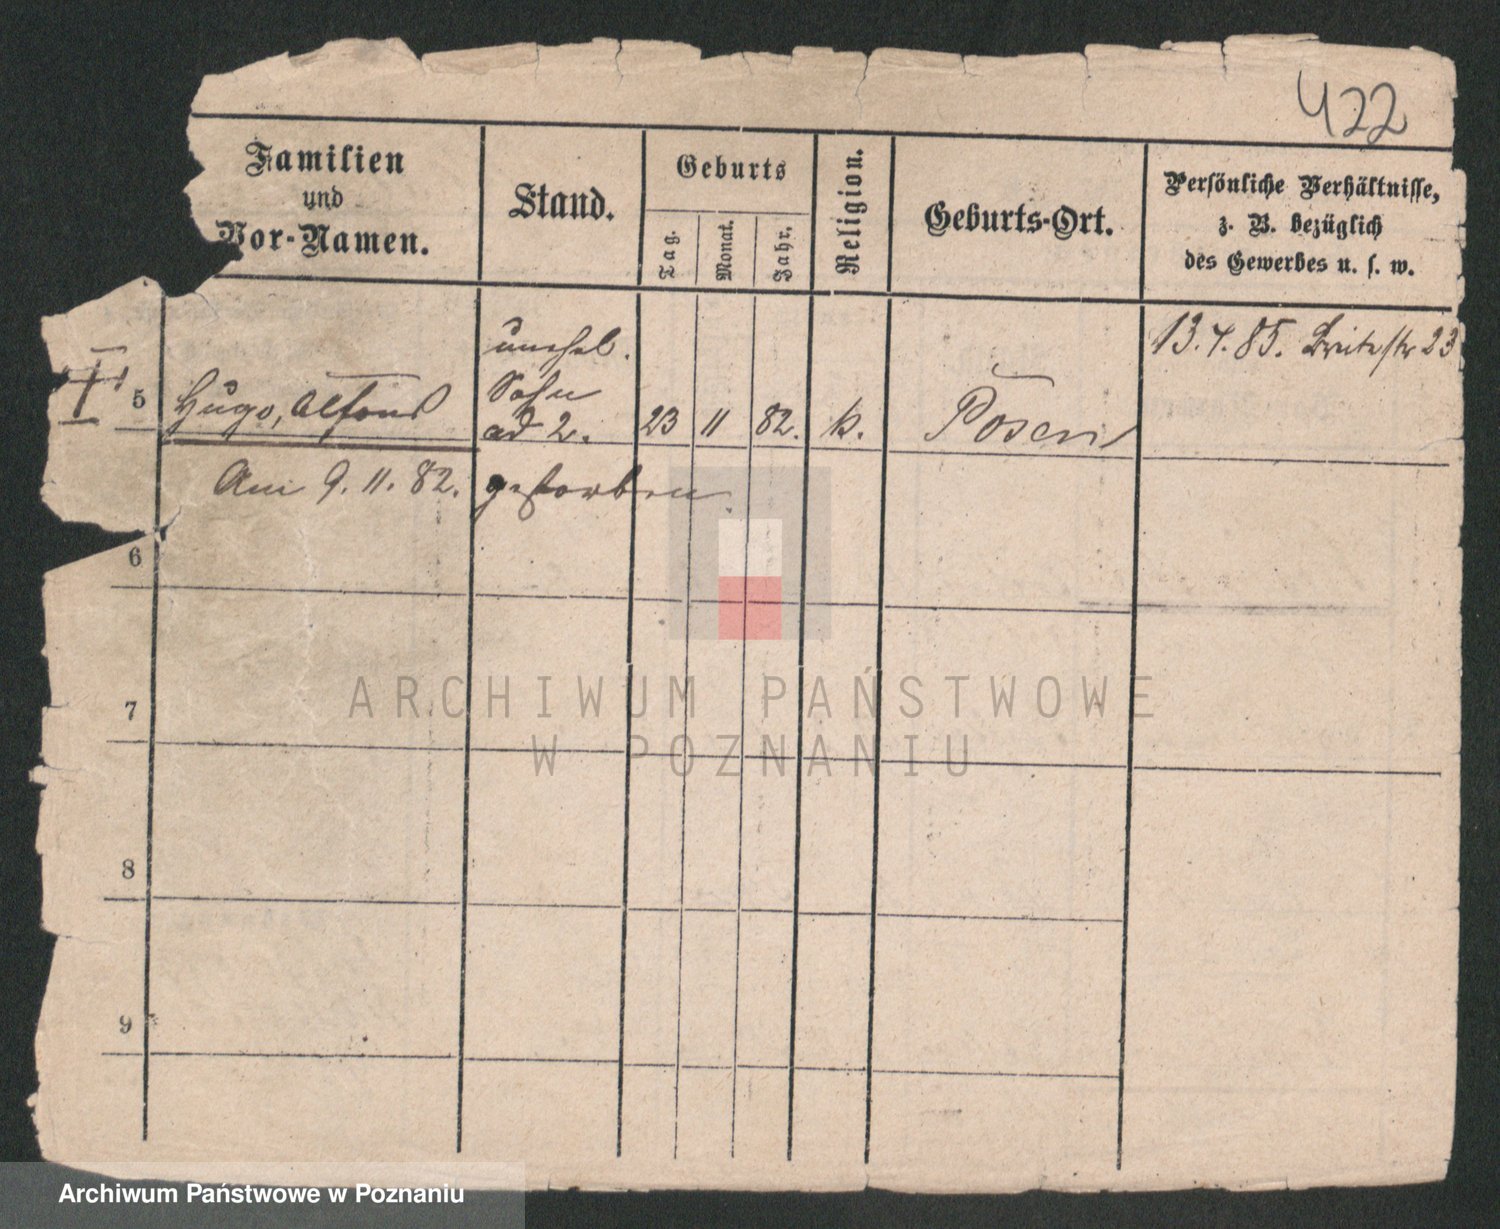 422
Familien
und
Vor-Namen.
Stand.
Geburts
Tag.
Monat.
Jahr.
Religion.
Geburts-Ort.
Persönliche Verhältnisse,
z. B. bezüglich
des Gewerbes u. s. w.
13.4.85. Breitestr 23
unehel.
5 Hugo, Alfons Sohn
ad 2. 23 11 82. k. Posen
Am 9.11.82. gestorben
6
7
8
9
ARCHIWUM PAŃSTWOWE
W POZNANIU
Archiwum Państwowe w Poznaniu